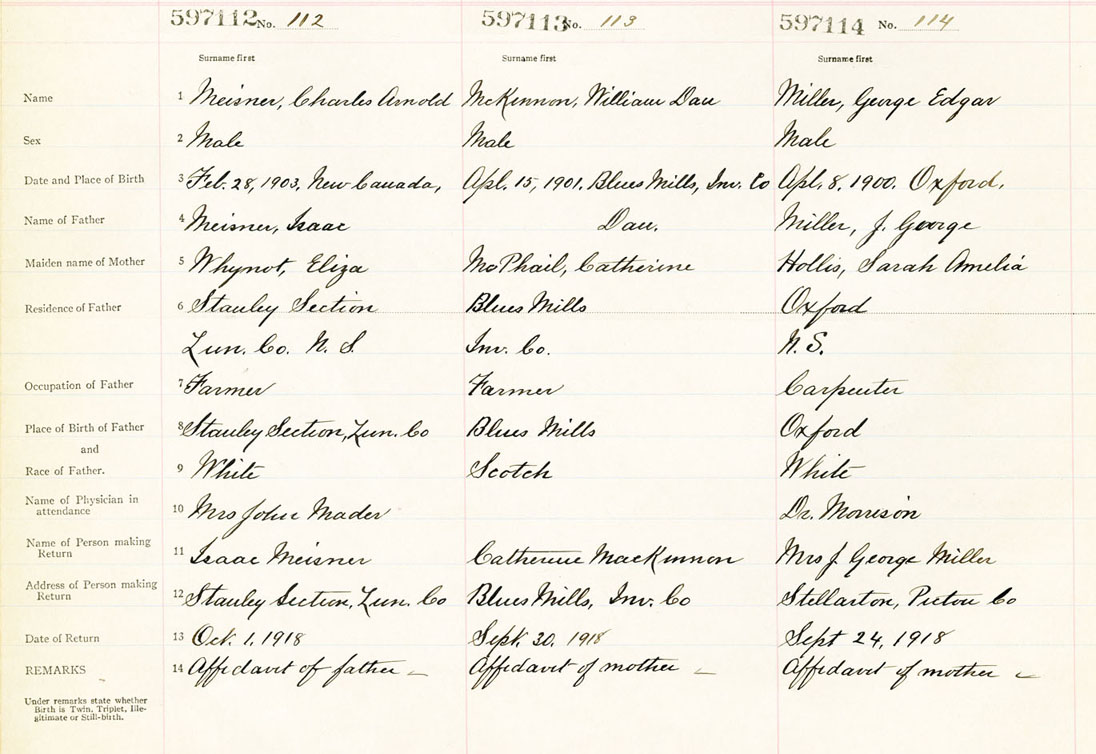 597112 No. 112 597113 No. 113 597114 No. 114
Surname first Surname first Surname first
Name 1 Meisner, Charles Arnold McKinnon, William Dan Miller, George Edgar
Sex 2 Male Male Male
Date and Place of Birth 3 Feb. 28, 1903, New Canada, Apl. 15, 1901. Blues Mills, Inv. Co Apl. 8, 1900. Oxford.
Name of Father 4 Meisner, Isaac Dan. Miller, J. George
Maiden name of Mother 5 Whynot, Eliza McPhail, Catherine Hollis, Sarah Amelia
Residence of Father 6 Stanley Section Blues Mills Oxford
Lun. Co. N. S. Inv. Co. N. S.
Occupation of Father 7 Farmer Farmer Carpenter
Place of Birth of Father 8 Stanley Section, Lun. Co Blues Mills Oxford
and
Race of Father. 9 White Scotch White
Name of Physician in
attendance 10 Mrs John Mader Dr. Morrison
Name of Person making
Return 11 Isaac Meisner Catherine MacKinnon Mrs J. George Miller
Address of Person making
Return 12 Stanley Section, Lun. Co Blues Mills, Inv. Co Stellarton, Pictou Co
Date of Return 13 Oct. 1, 1918 Sept. 30, 1918 Sept 24, 1918
REMARKS 14 Affidavit of father – Affidavit of mother – Affidavit of mother –
Under remarks state whether
Birth is Twin, Triplet, Ille-
gitimate or Still-birth.